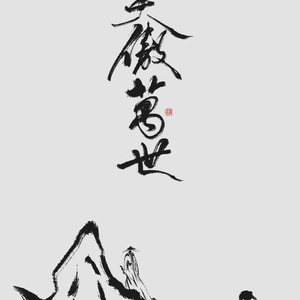 傲萬世